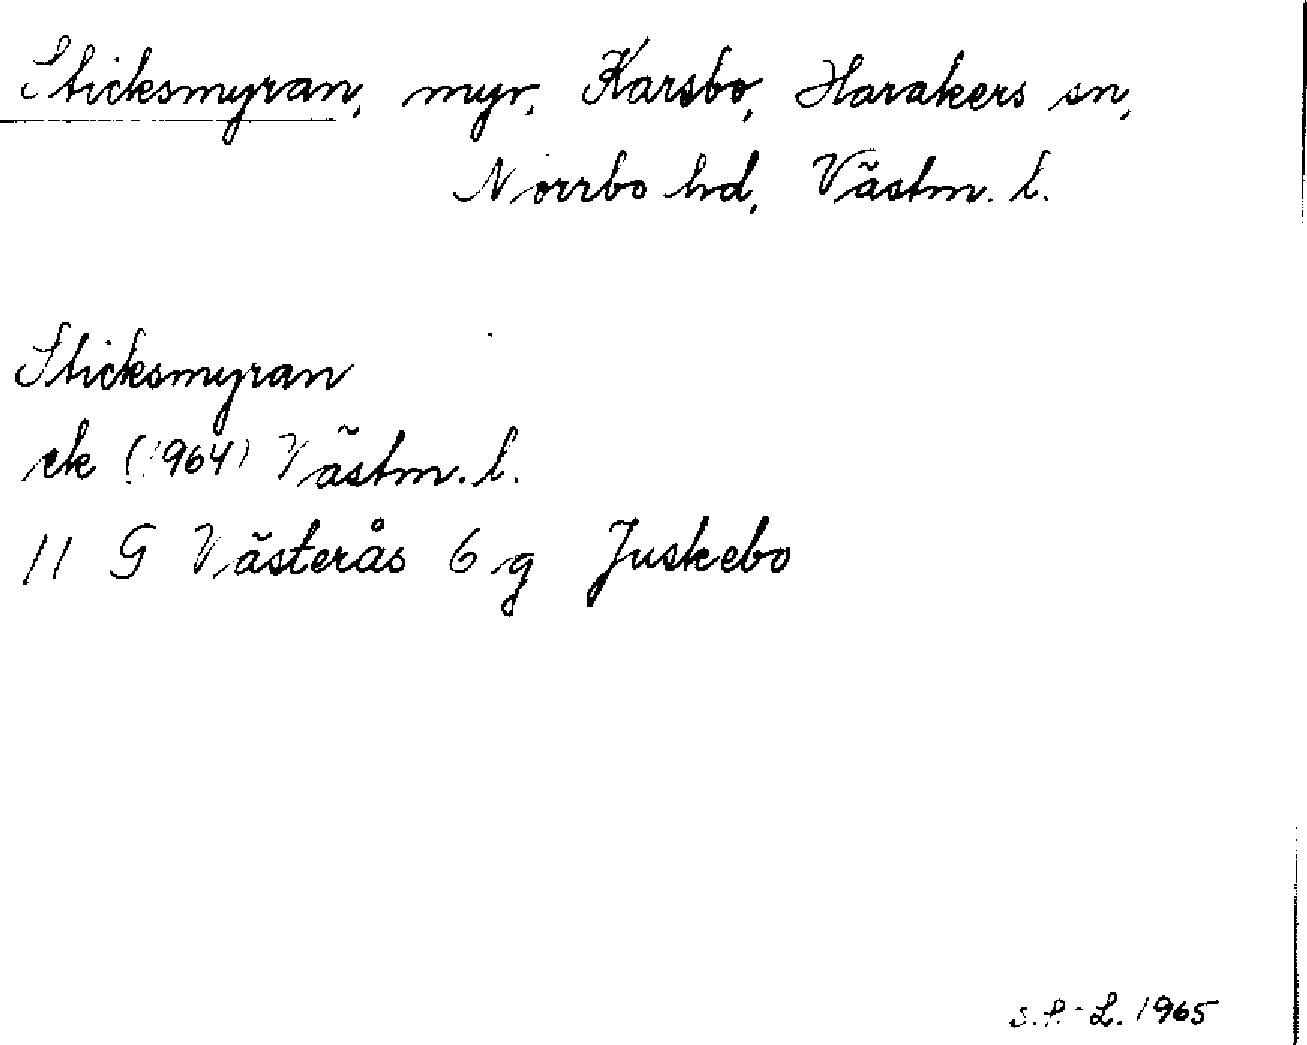 Sticksmyran, myr, Karsbo, Harakers sn,
Norrbo hd, Västm. l.
Sticksmyran
ek (1964) Västm. l.
11 G Västerås 6 g Juskebo
L. 1965